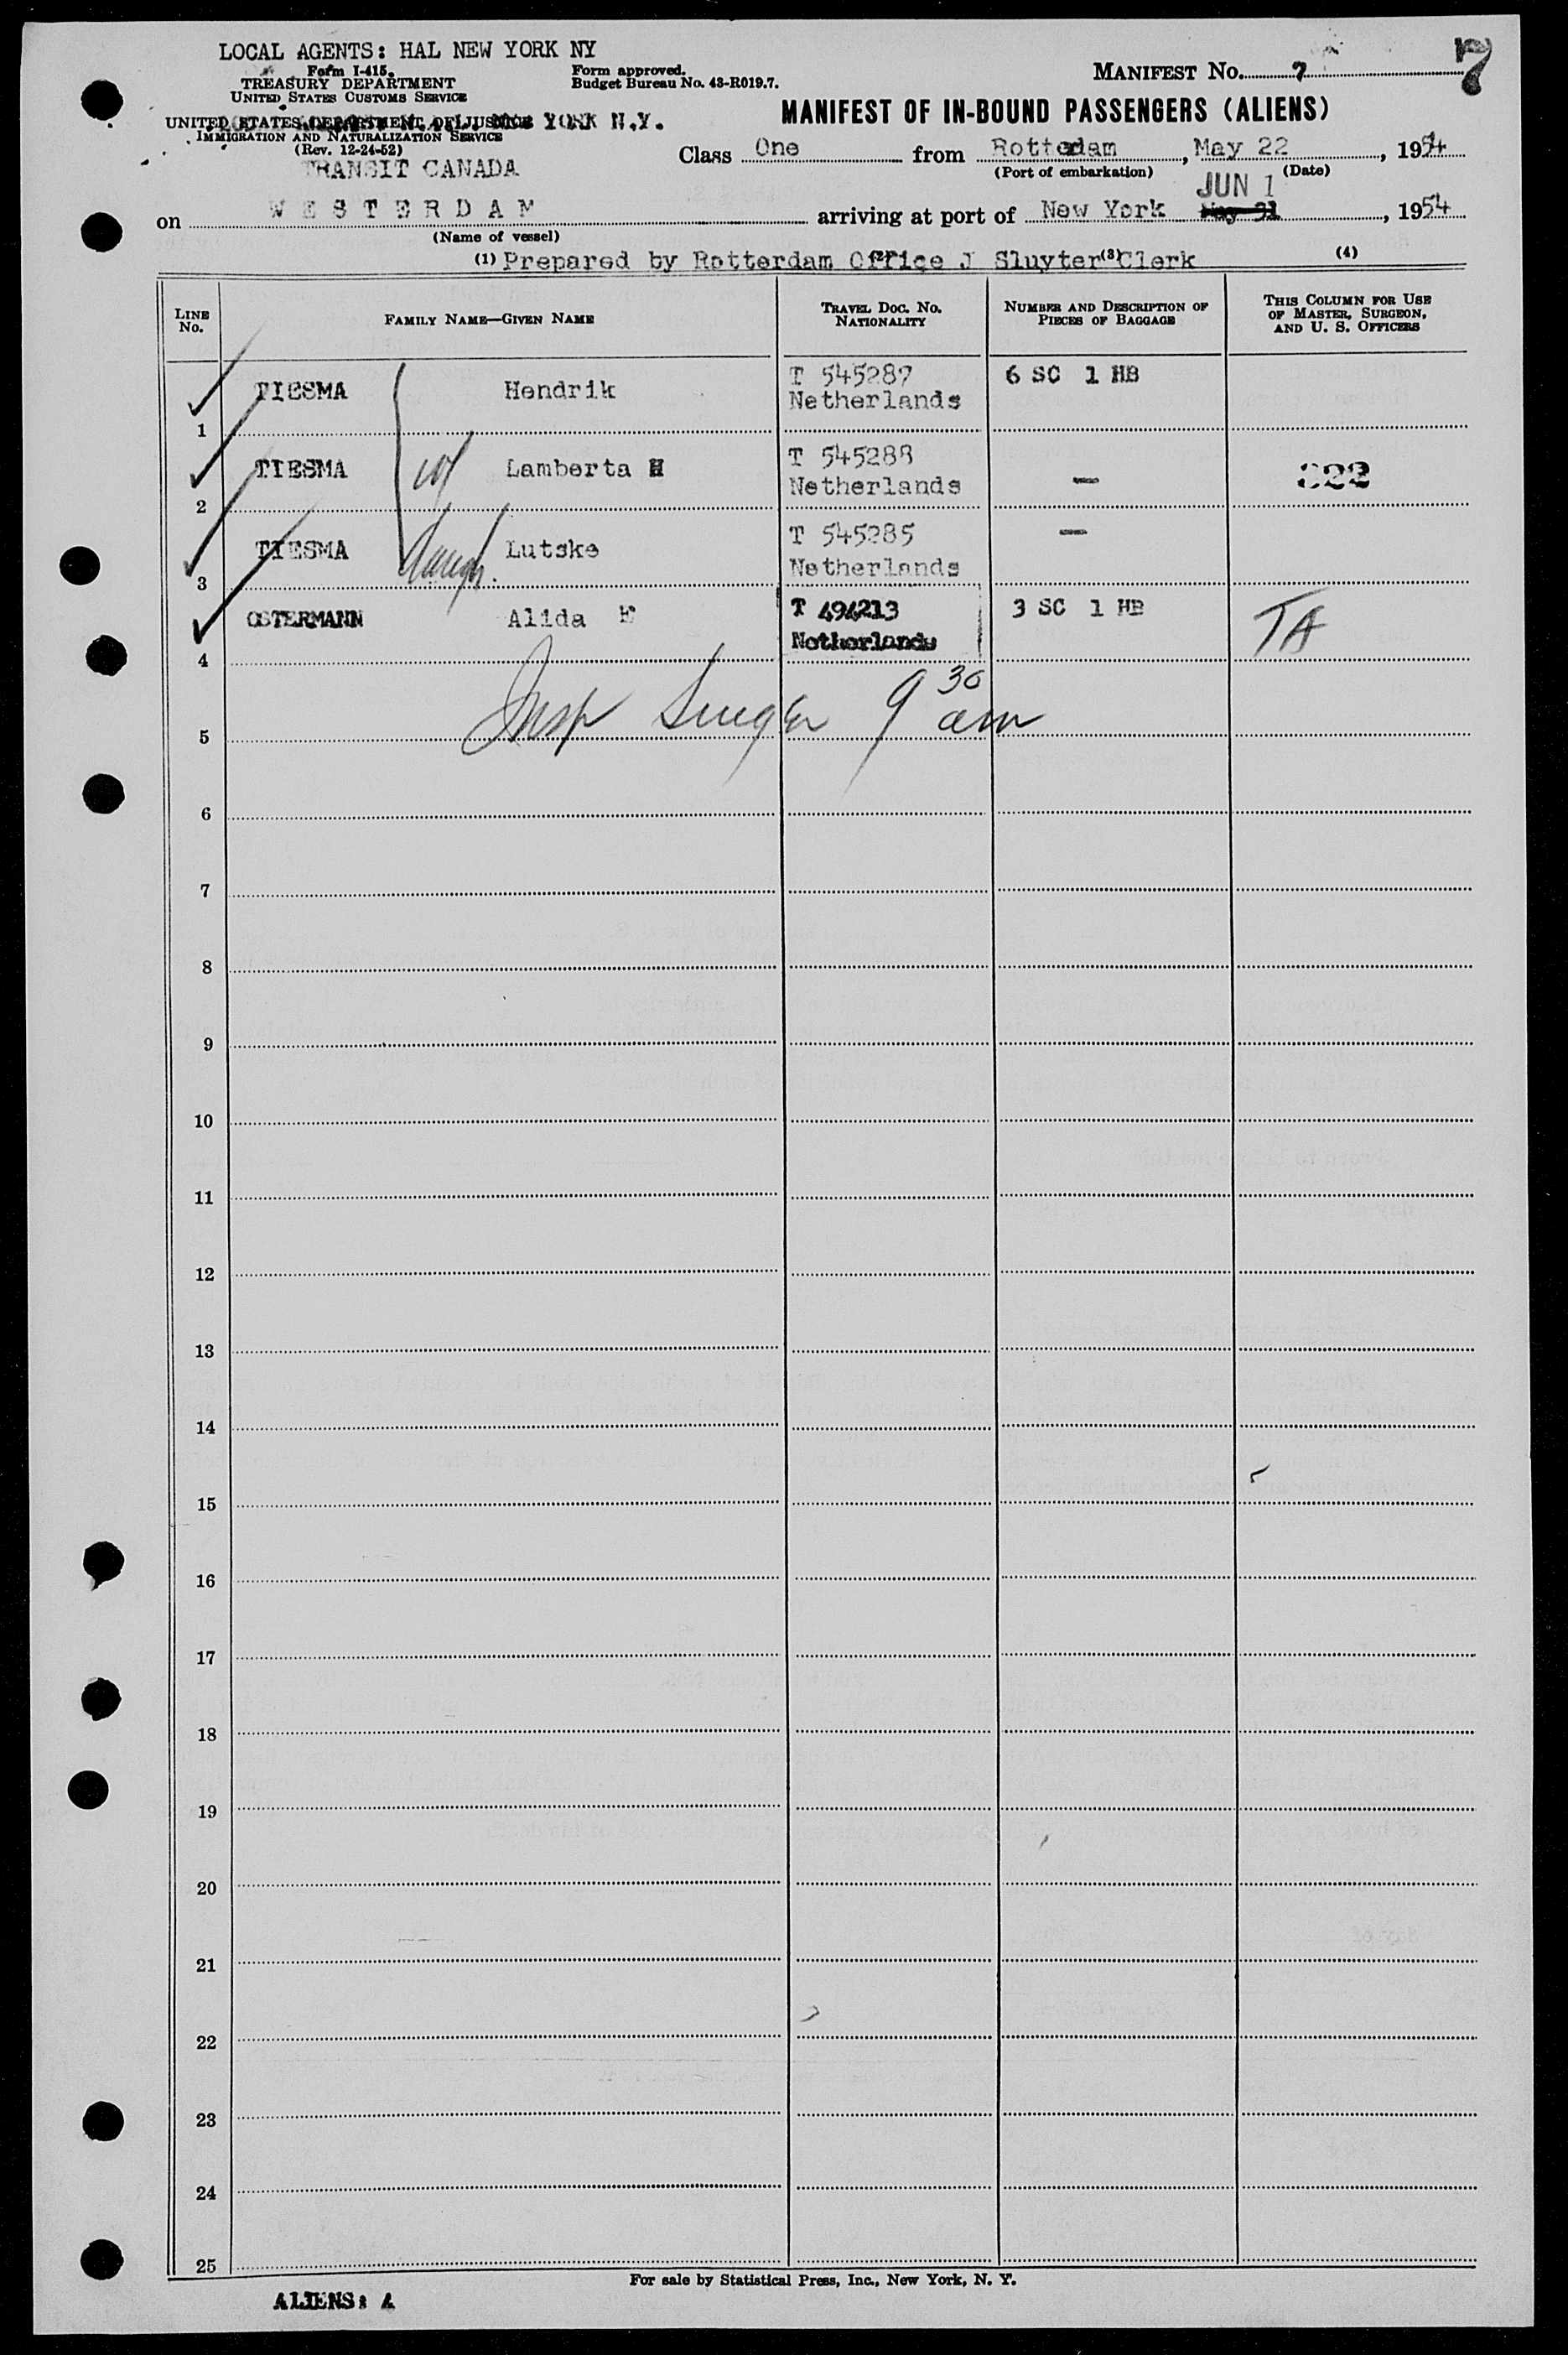 LOCAL AGENTS: HAL NEW YORK NY
7
Form I-415.
TREASURY DEPARTMENT
UNITED STATES CUSTOMS SERVICE
UNITED STATES DEPARTMENT OF JUSTICE YORK N.Y.
IMMIGRATION AND NATURALIZATION SERVICE
(Rev. 12-24-52)
TRANSIT CANADA
Form approved.
Budget Bureau No. 43-R019.7.
MANIFEST No. 7
MANIFEST OF IN-BOUND PASSENGERS (ALIENS)
Class One from Rotterdam, May 22, 1954
(Port of embarkation) (Date)
JUN 1
on WESTERDAM arriving at port of New York May 31, 1954
(Name of vessel)
(1) Prepared by Rotterdam Office J Sluyter (3) Clerk (4)
LINE No. FAMILY NAME—GIVEN NAME TRAVEL DOC. No. NATIONALITY NUMBER AND DESCRIPTION OF PIECES OF BAGGAGE THIS COLUMN FOR USE OF MASTER, SURGEON, AND U. S. OFFICERS
1 TIESMA Hendrik T 545287 Netherlands 6 SC 1 HB
2 TIESMA wf Lamberta H T 545288 Netherlands — 822
3 TIESMA daugh. Lutske T 545285 Netherlands —
4 OSTERMANN Alida E T 494213 Netherlands 3 SC 1 HB TA
Insp Singer 9 30 am
5
6
7
8
9
10
11
12
13
14
15
16
17
18
19
20
21
22
23
24
25
For sale by Statistical Press, Inc., New York, N. Y.
ALIENS: 4